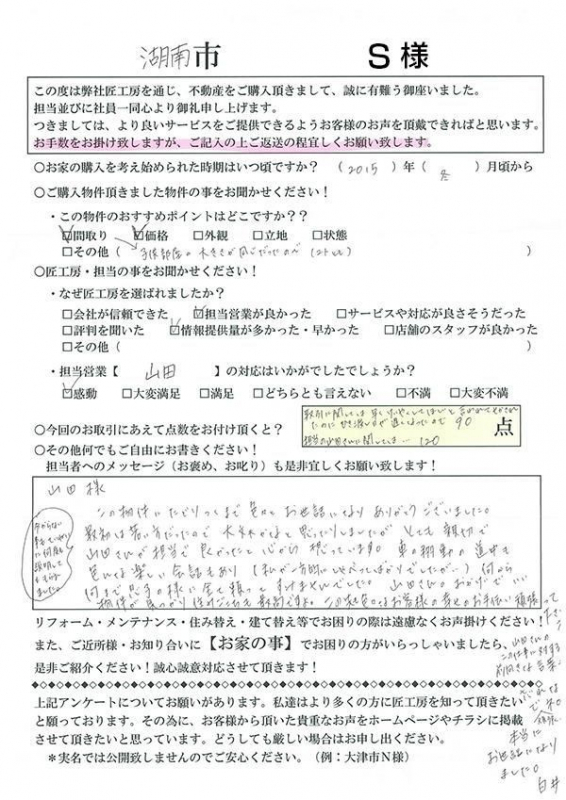 湖南市 S様
この度は弊社匠工房を通じ、不動産をご購入頂きまして、誠に有難う御座いました。
担当並びに社員一同心より御礼申し上げます。
つきましては、より良いサービスをご提供できるようお客様のお声を頂戴できればと思います。
お手数をお掛け致しますが、ご記入の上ご返送の程宜しくお願い致します。
○お家の購入を考え始められた時期はいつ頃ですか？ （2015）年（冬）月頃から
○ご購入物件頂きました物件の事をお聞かせください！
・この物件のおすすめポイントはどこですか？？
☑間取り ☑価格 □外観 □立地 □状態
□その他（子供部屋の大きさが ）
○匠工房・担当の事をお聞かせください！
・なぜ匠工房を選ばれましたか？
□会社が信頼できた ☑担当営業が良かった □サービスや対応が良さそうだった
□評判を聞いた ☑情報提供量が多かった・早かった □店舗のスタッフが良かった
□その他【 】
・担当営業【 山田 】の対応はいかがでしたでしょうか？
☑感動 □大変満足 □満足 □どちらとも言えない □不満 □大変不満
○今回のお取引にあえて点数をお付け頂くと？
取引に関しては
90 点
担当山田さんに関しては… 120
○その他何でもご自由にお書きください！
担当者へのメッセージ（お褒め、お叱り）も是非宜しくお願い致します！
山田様
この物件にたどりつくまで色々とお世話になりありがとうございました。
最初は若い方だったので大丈夫かなと思ったりしましたが とても親切で
山田さんが担当で良かったと心から思っています。車の移動の道中も
色んな楽しい会話もあり（私が一方的にしゃべってばかりでしたが…）何から
何まで 山田さんのおかげでいい
物件が見つかり
分からない事も
何度も説明してもらえました。
リフォーム・メンテナンス・住み替え・建て替え等でお困りの際は遠慮なくお声掛けください！
また、ご近所様・お知り合いに【お家の事】でお困りの方がいらっしゃいましたら、
是非ご紹介ください！誠心誠意対応させて頂きます！
上記アンケートについてお願いがあります。私達はより多くの方に匠工房を知って頂きたい
と願っております。その為に、お客様から頂いた貴重なお声をホームページやチラシに掲載
させて頂きたいと思っています。どうしても厳しい場合はお申し出ください。
＊実名では公開致しませんのでご安心ください。（例：大津市N様）
本当に
お世話になり
ました。
白井